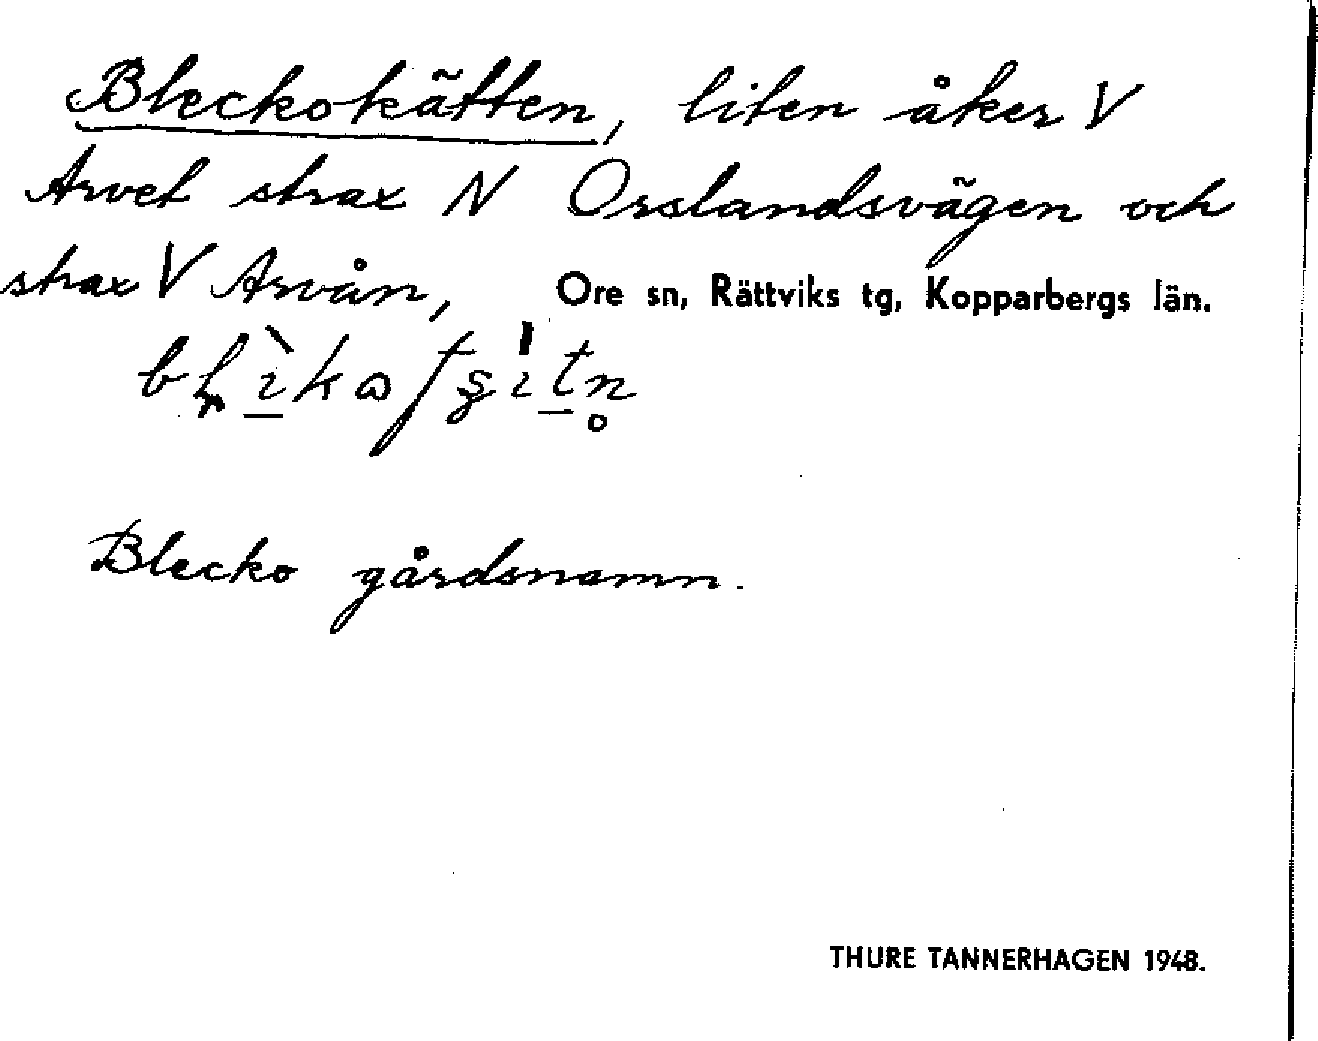 Bleckokätten, liten åker V
Arvet strax N Orslandsvägen och
strax V Arvån, Ore sn, Rättviks tg, Kopparbergs län.
Blecko gårdsnamn.
THURE TANNERHAGEN 1948.